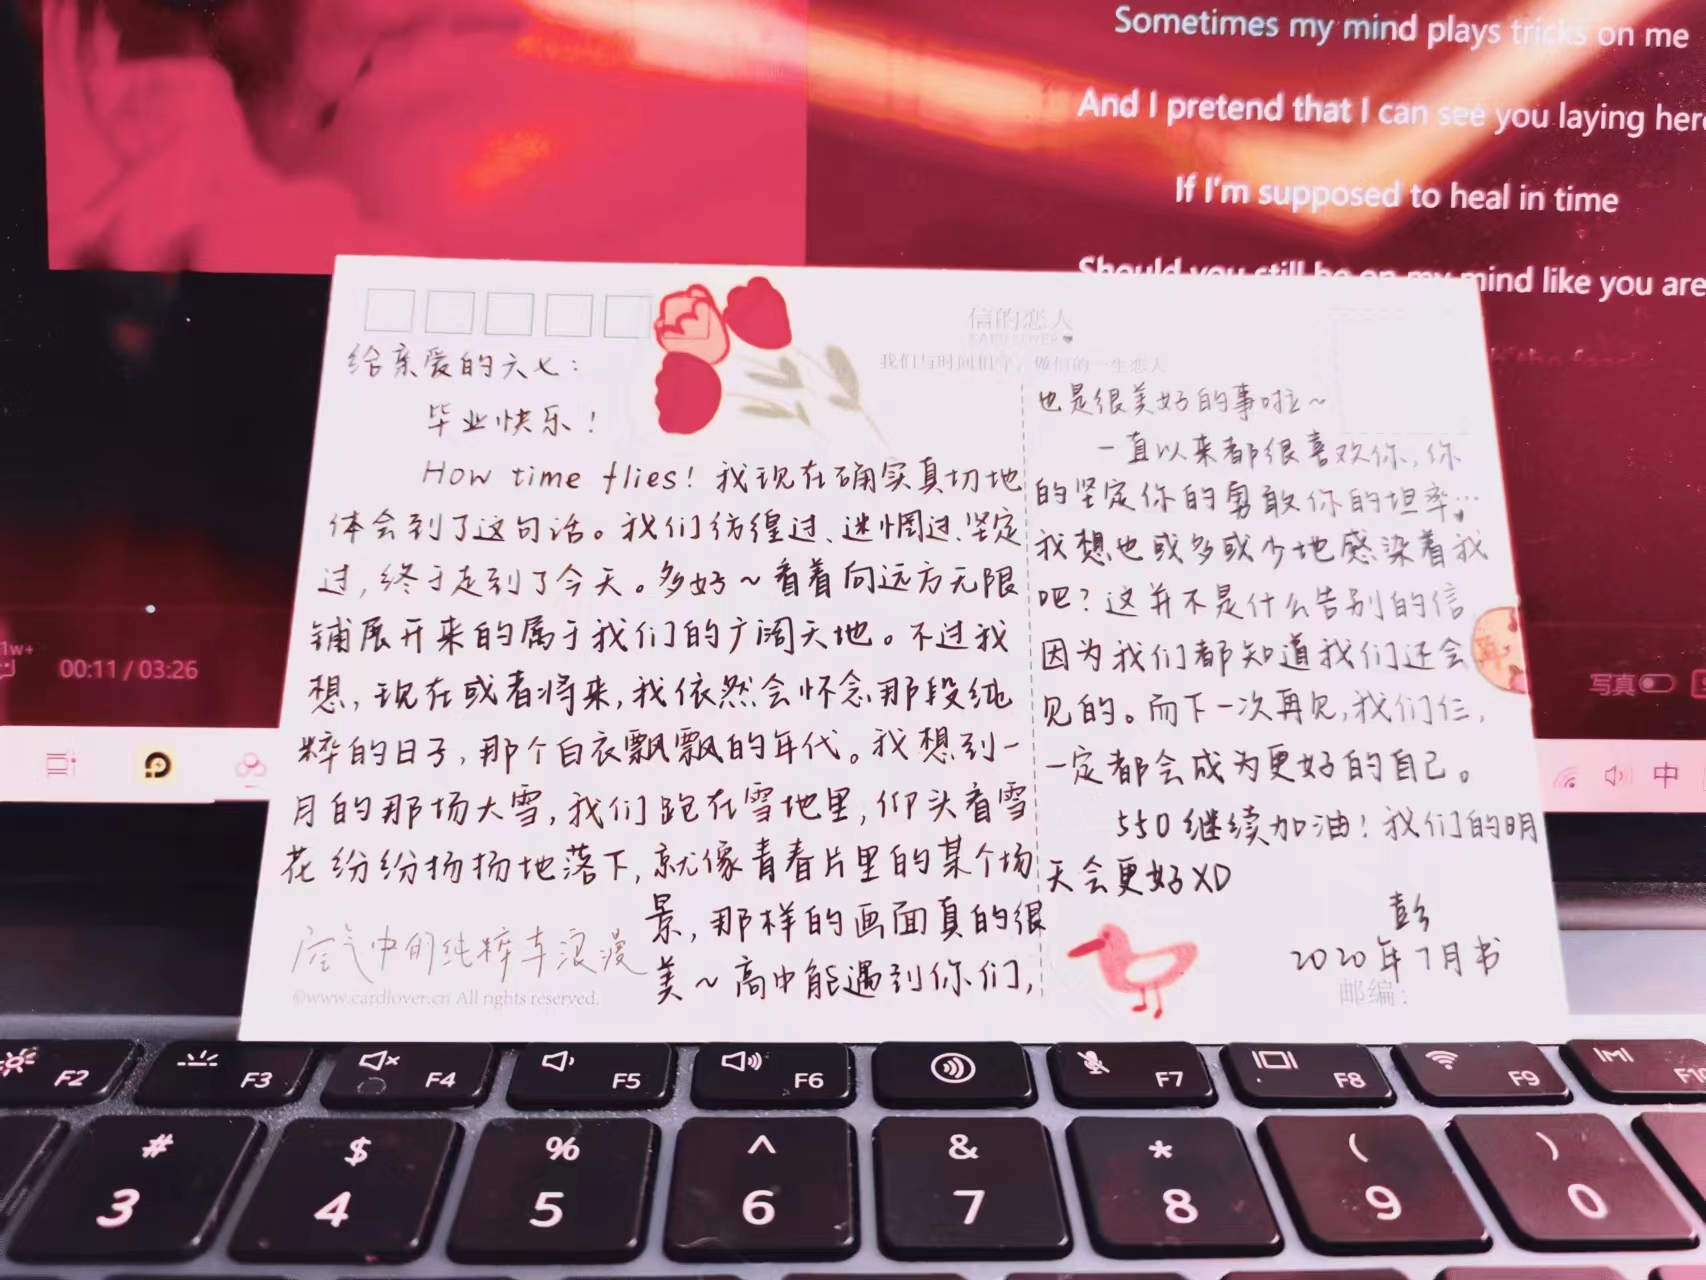 Sometimes my mind plays tricks on me
And I pretend that I can see you laying here
If I'm supposed to heal in time
Should you still be on my mind like you are
信的恋人
CARD LOVER
我们与时间相守，做信的一生恋人
给亲爱的六七：
毕业快乐！
How time flies！我现在确实真切地
体会到了这句话。我们彷徨过、迷惘过、坚定
过，终于走到了今天。多好～看着向远方无限
铺展开来的属于我们的广阔天地。不过我
想，现在或者将来，我依然会怀念那段纯
粹的日子，那个白衣飘飘的年代。我想到一
月的那场大雪，我们跑在雪地里，仰头看雪
花纷纷扬扬地落下，就像青春片里的某个场
景，那样的画面真的很
美～高中能遇到你们，
也是很美好的事啦～
一直以来都很喜欢你，你
的坚定你的勇敢你的坦率…
我想也或多或少地感染着我
吧？这并不是什么告别的信
因为我们都知道我们还会
见的。而下一次再见，我们仨，
一定都会成为更好的自己。
550继续加油！我们的明
天会更好XD
彭
2020年7月书
邮编：
空气中的纯粹车浪漫
©www.cardlover.cn All rights reserved.
1w+
00:11 / 03:26
写真
中
F2
F3
F4
F5
F6
F7
F8
F9
F10
# 3
$ 4
% 5
^ 6
& 7
* 8
( 9
) 0